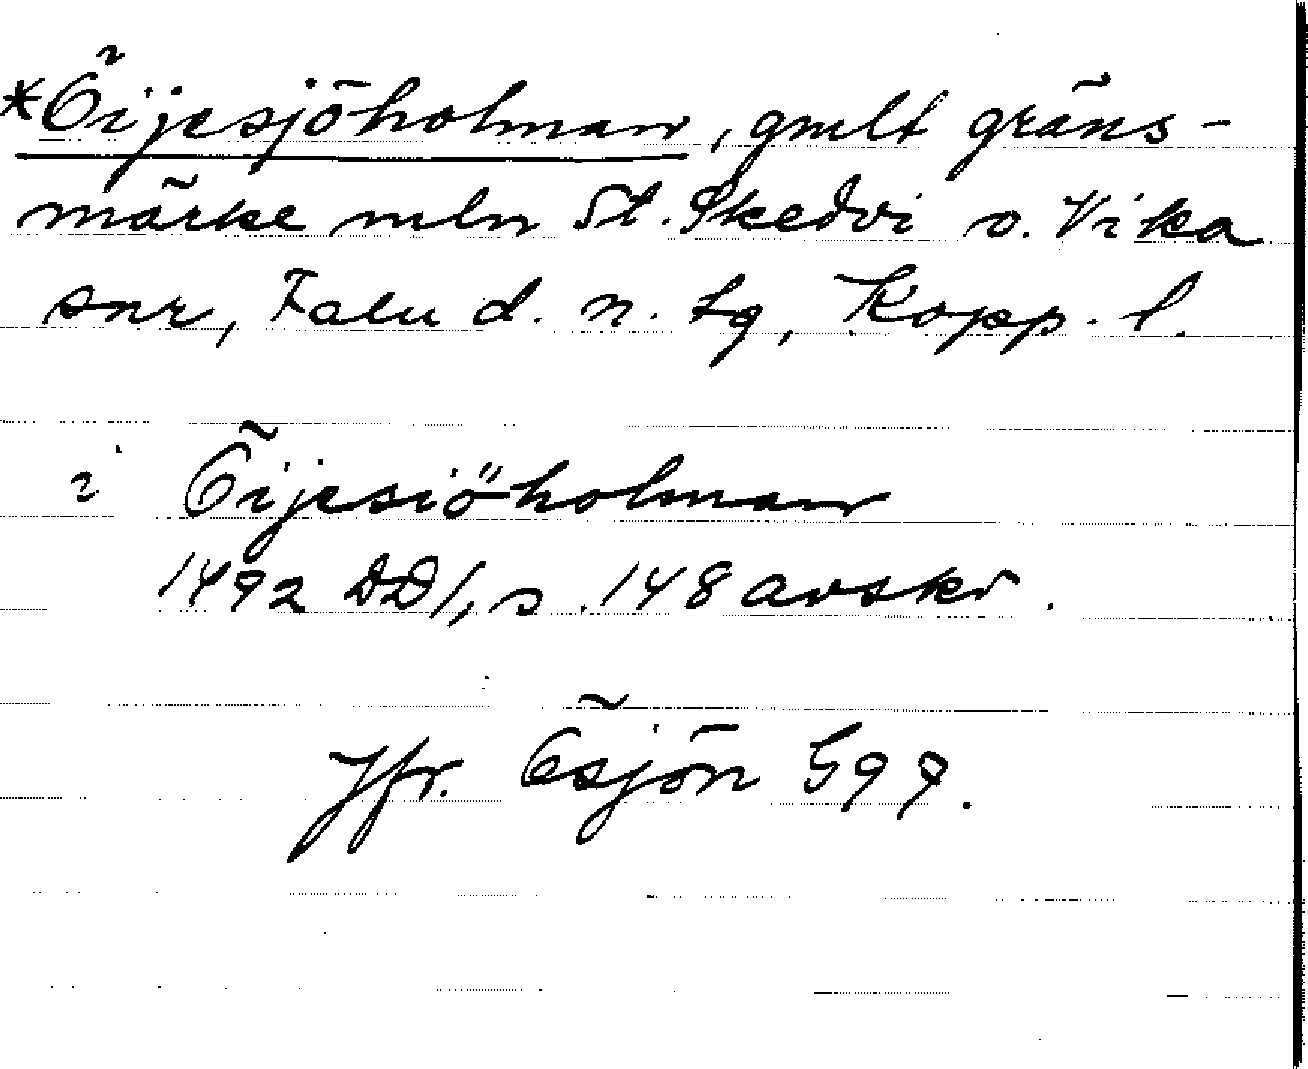 *Öijesjöholman, gmlt gräns-
märke mln St. Skedvi o. Vika
snr, Falu d. n. tg, Kopp. l.
i Öijesiöholman
1492 DD1, s. 148 avskr.
Jfr. Ösjön G99.